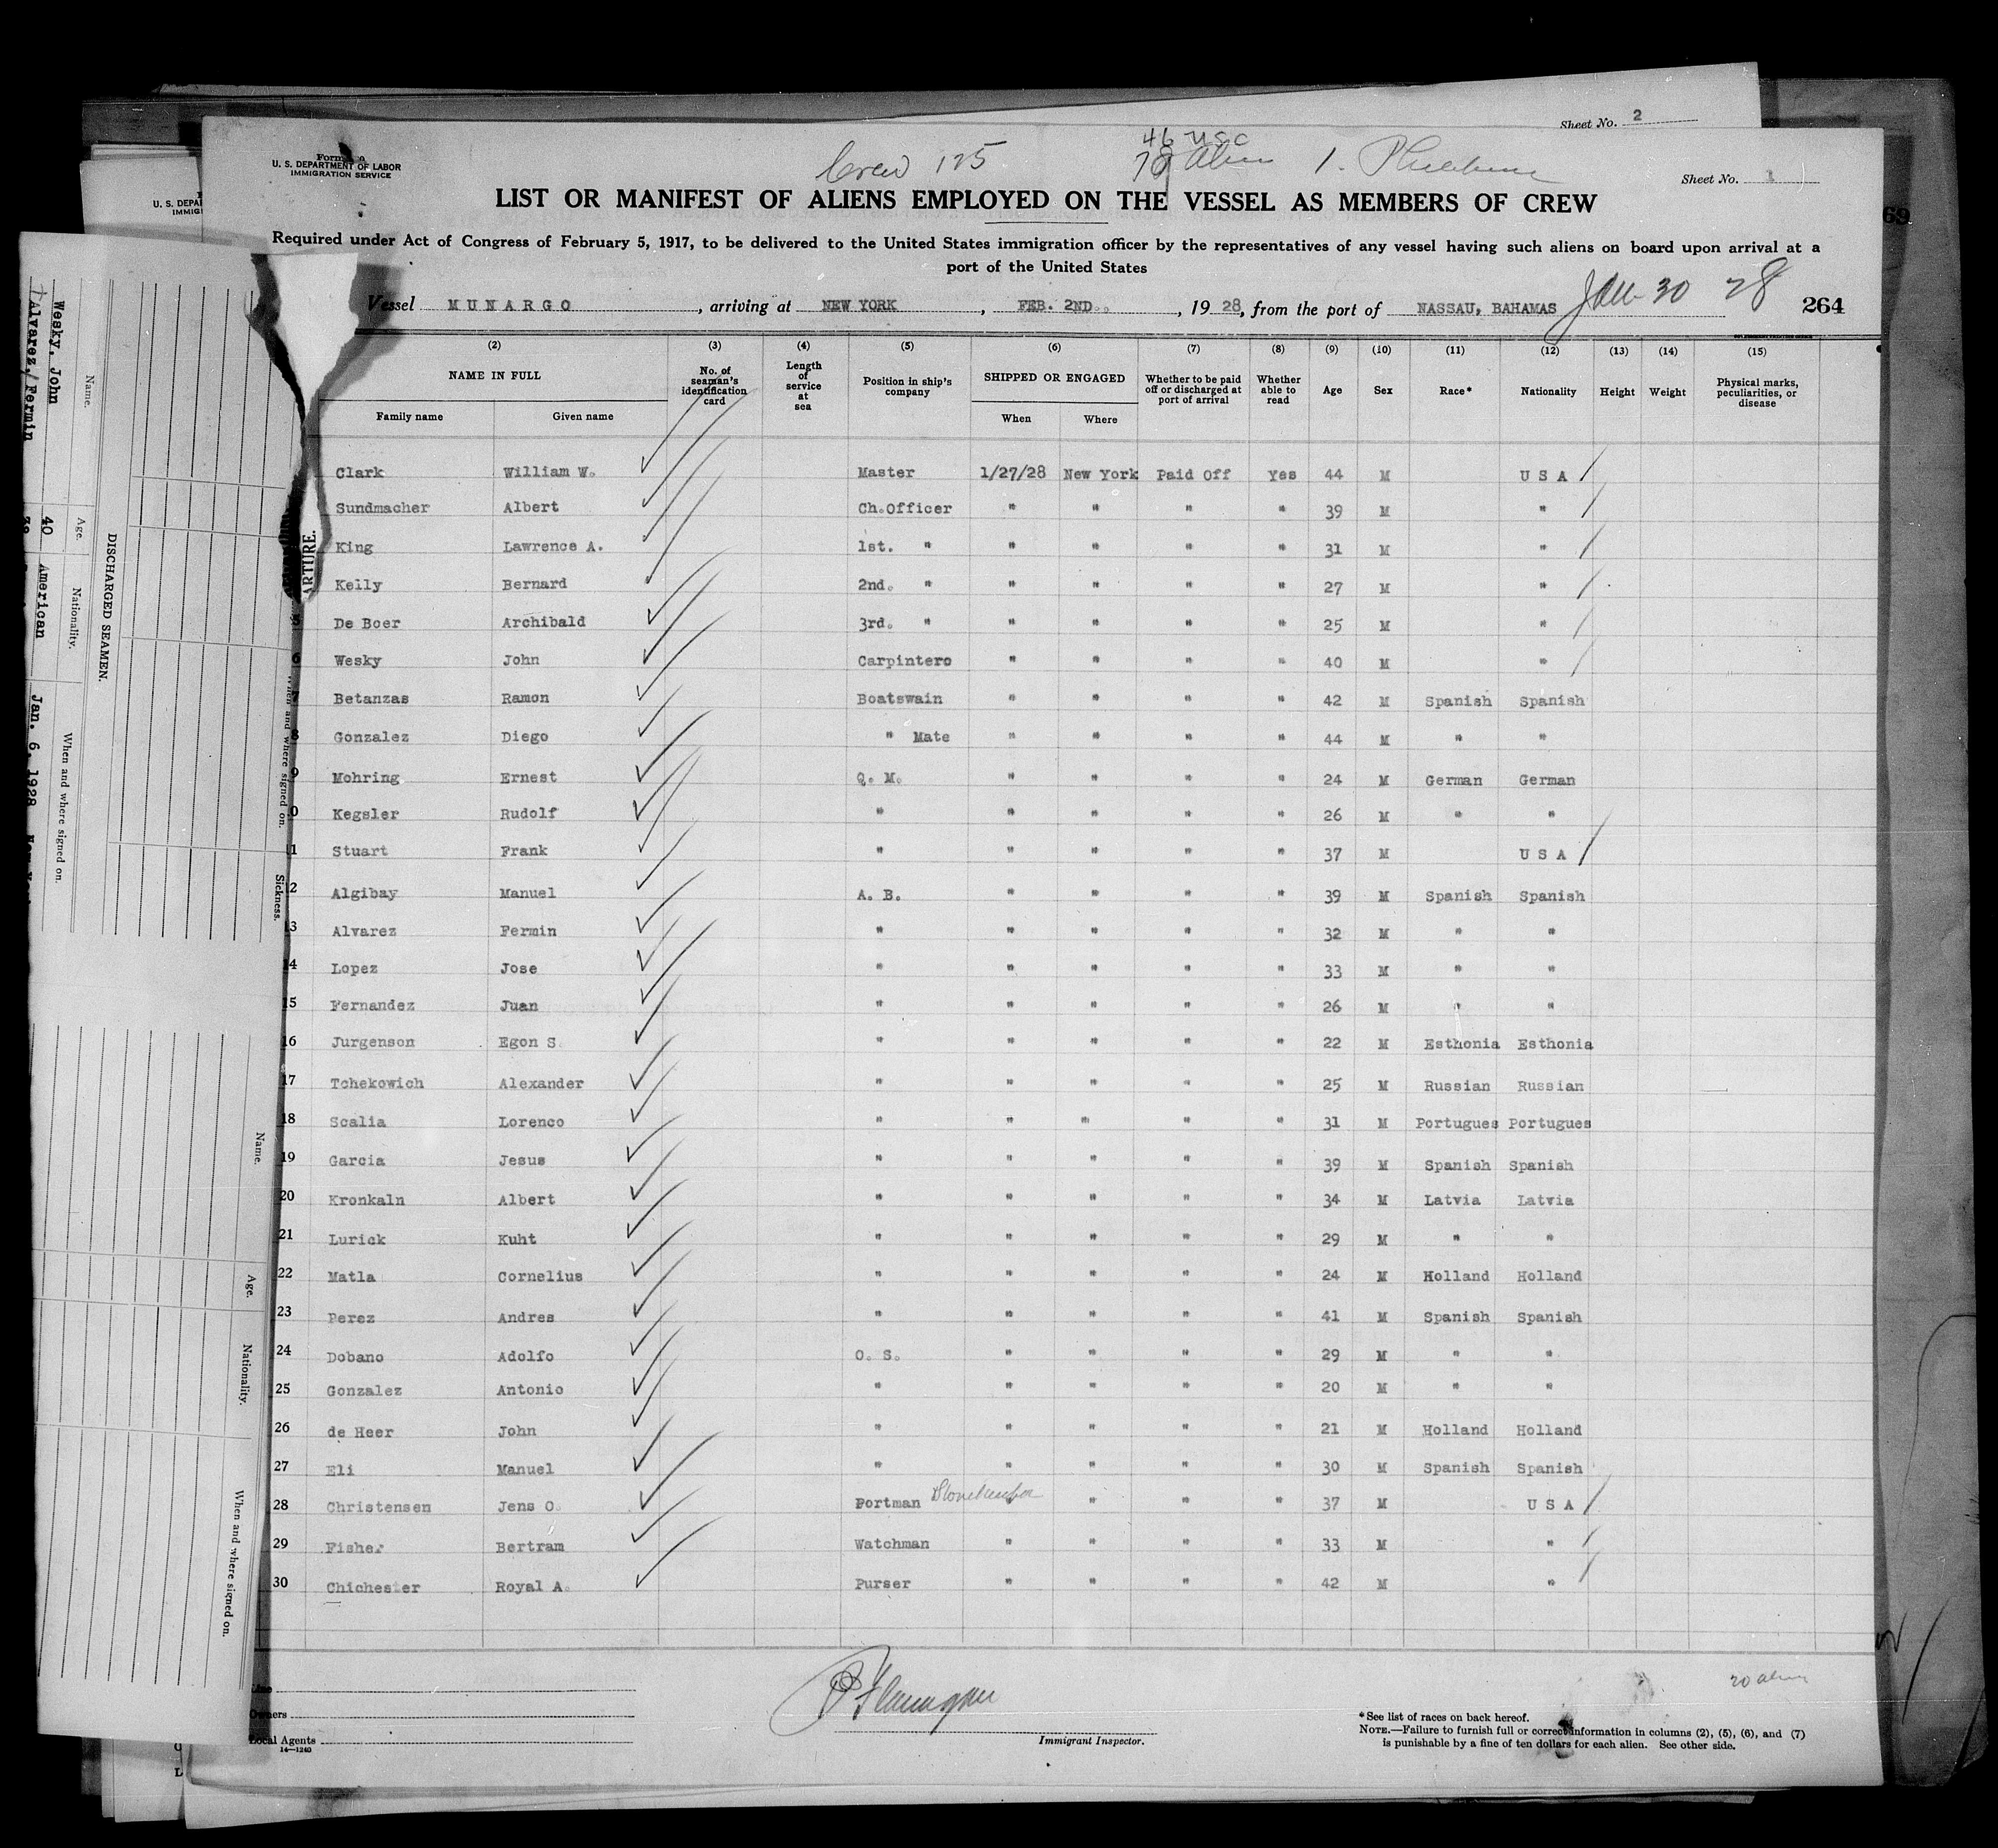 Sheet No. 2
Form
U. S. DEPARTMENT OF LABOR
IMMIGRATION SERVICE
Crew 125
46 USC
78 Alien
Sheet No.
LIST OR MANIFEST OF ALIENS EMPLOYED ON THE VESSEL AS MEMBERS OF CREW
Required under Act of Congress of February 5, 1917, to be delivered to the United States immigration officer by the representatives of any vessel having such aliens on board upon arrival at a
port of the United States
Vessel MUNARGO, arriving at NEW YORK, FEB. 2ND., 1928, from the port of NASSAU, BAHAMAS Jan 30 28 264
(2) (3) (4) (5) (6) (7) (8) (9) (10) (11) (12) (13) (14) (15)
NAME IN FULL No. of seaman's identification card Length of service at sea Position in ship's company SHIPPED OR ENGAGED Whether to be paid off or discharged at port of arrival Whether able to read Age Sex Race* Nationality Height Weight Physical marks, peculiarities, or disease
Family name Given name When Where
Clark William W. Master 1/27/28 New York Paid Off Yes 44 M U S A
Sundmacher Albert Ch.Officer " " " " 39 M "
King Lawrence A. 1st. " " " " " 31 M "
Kelly Bernard 2nd. " " " " " 27 M "
5 De Boer Archibald 3rd. " " " " " 25 M "
6 Wesky John Carpintero " " " " 40 M "
7 Betanzas Ramon Boatswain " " " " 42 M Spanish Spanish
8 Gonzalez Diego " Mate " " " " 44 M " "
9 Mohring Ernest Q. M. " " " " 24 M German German
0 Kegsler Rudolf " " " " " 26 M " "
1 Stuart Frank " " " " " 37 M U S A
2 Algibay Manuel A. B. " " " " 39 M Spanish Spanish
13 Alvarez Fermin " " " " " 32 M " "
14 Lopez Jose " " " " " 33 M " "
15 Fernandez Juan " " " " " 26 M " "
16 Jurgenson Egon S. " " " " " 22 M Esthonia Esthonia
17 Tchekowich Alexander " " " " " 25 M Russian Russian
18 Scalia Lorenco " " " " " 31 M Portugues Portugues
19 Garcia Jesus " " " " " 39 M Spanish Spanish
20 Kronkaln Albert " " " " " 34 M Latvia Latvia
21 Lurick Kuht " " " " " 29 M " "
22 Matla Cornelius " " " " " 24 M Holland Holland
23 Perez Andres " " " " " 41 M Spanish Spanish
24 Dobano Adolfo O. S. " " " " 29 M " "
25 Gonzalez Antonio " " " " " 20 M " "
26 de Heer John " " " " " 21 M Holland Holland
27 Eli Manuel " " " " " 30 M Spanish Spanish
28 Christensen Jens O. Portman " " " " 37 M U S A
29 Fisher Bertram Watchman " " " " 33 M "
30 Chichester Royal A. Purser " " " " 42 M "
20 alien
Owners
Local Agents
14—1240
Immigrant Inspector.
*See list of races on back hereof.
NOTE.—Failure to furnish full or correct information in columns (2), (5), (6), and (7)
is punishable by a fine of ten dollars for each alien. See other side.
U. S. DEPA
IMMIG
69
ARTURE.
DISCHARGED SEAMEN.
Name. Age. Nationality. When and where signed on.
Wesky, John 40 American Jan. 6, 1928
Alvarez, Fermin
When and where signed on. Sickness.
Name. Age. Nationality. When and where signed on.